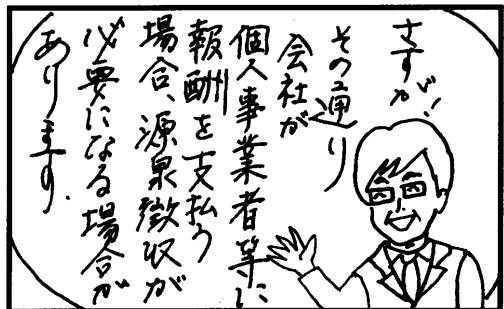 さすが!
その通り
会社が
個人事業者等に
報酬を支払う
場合、源泉徴収が
必要になる場合が
あります。